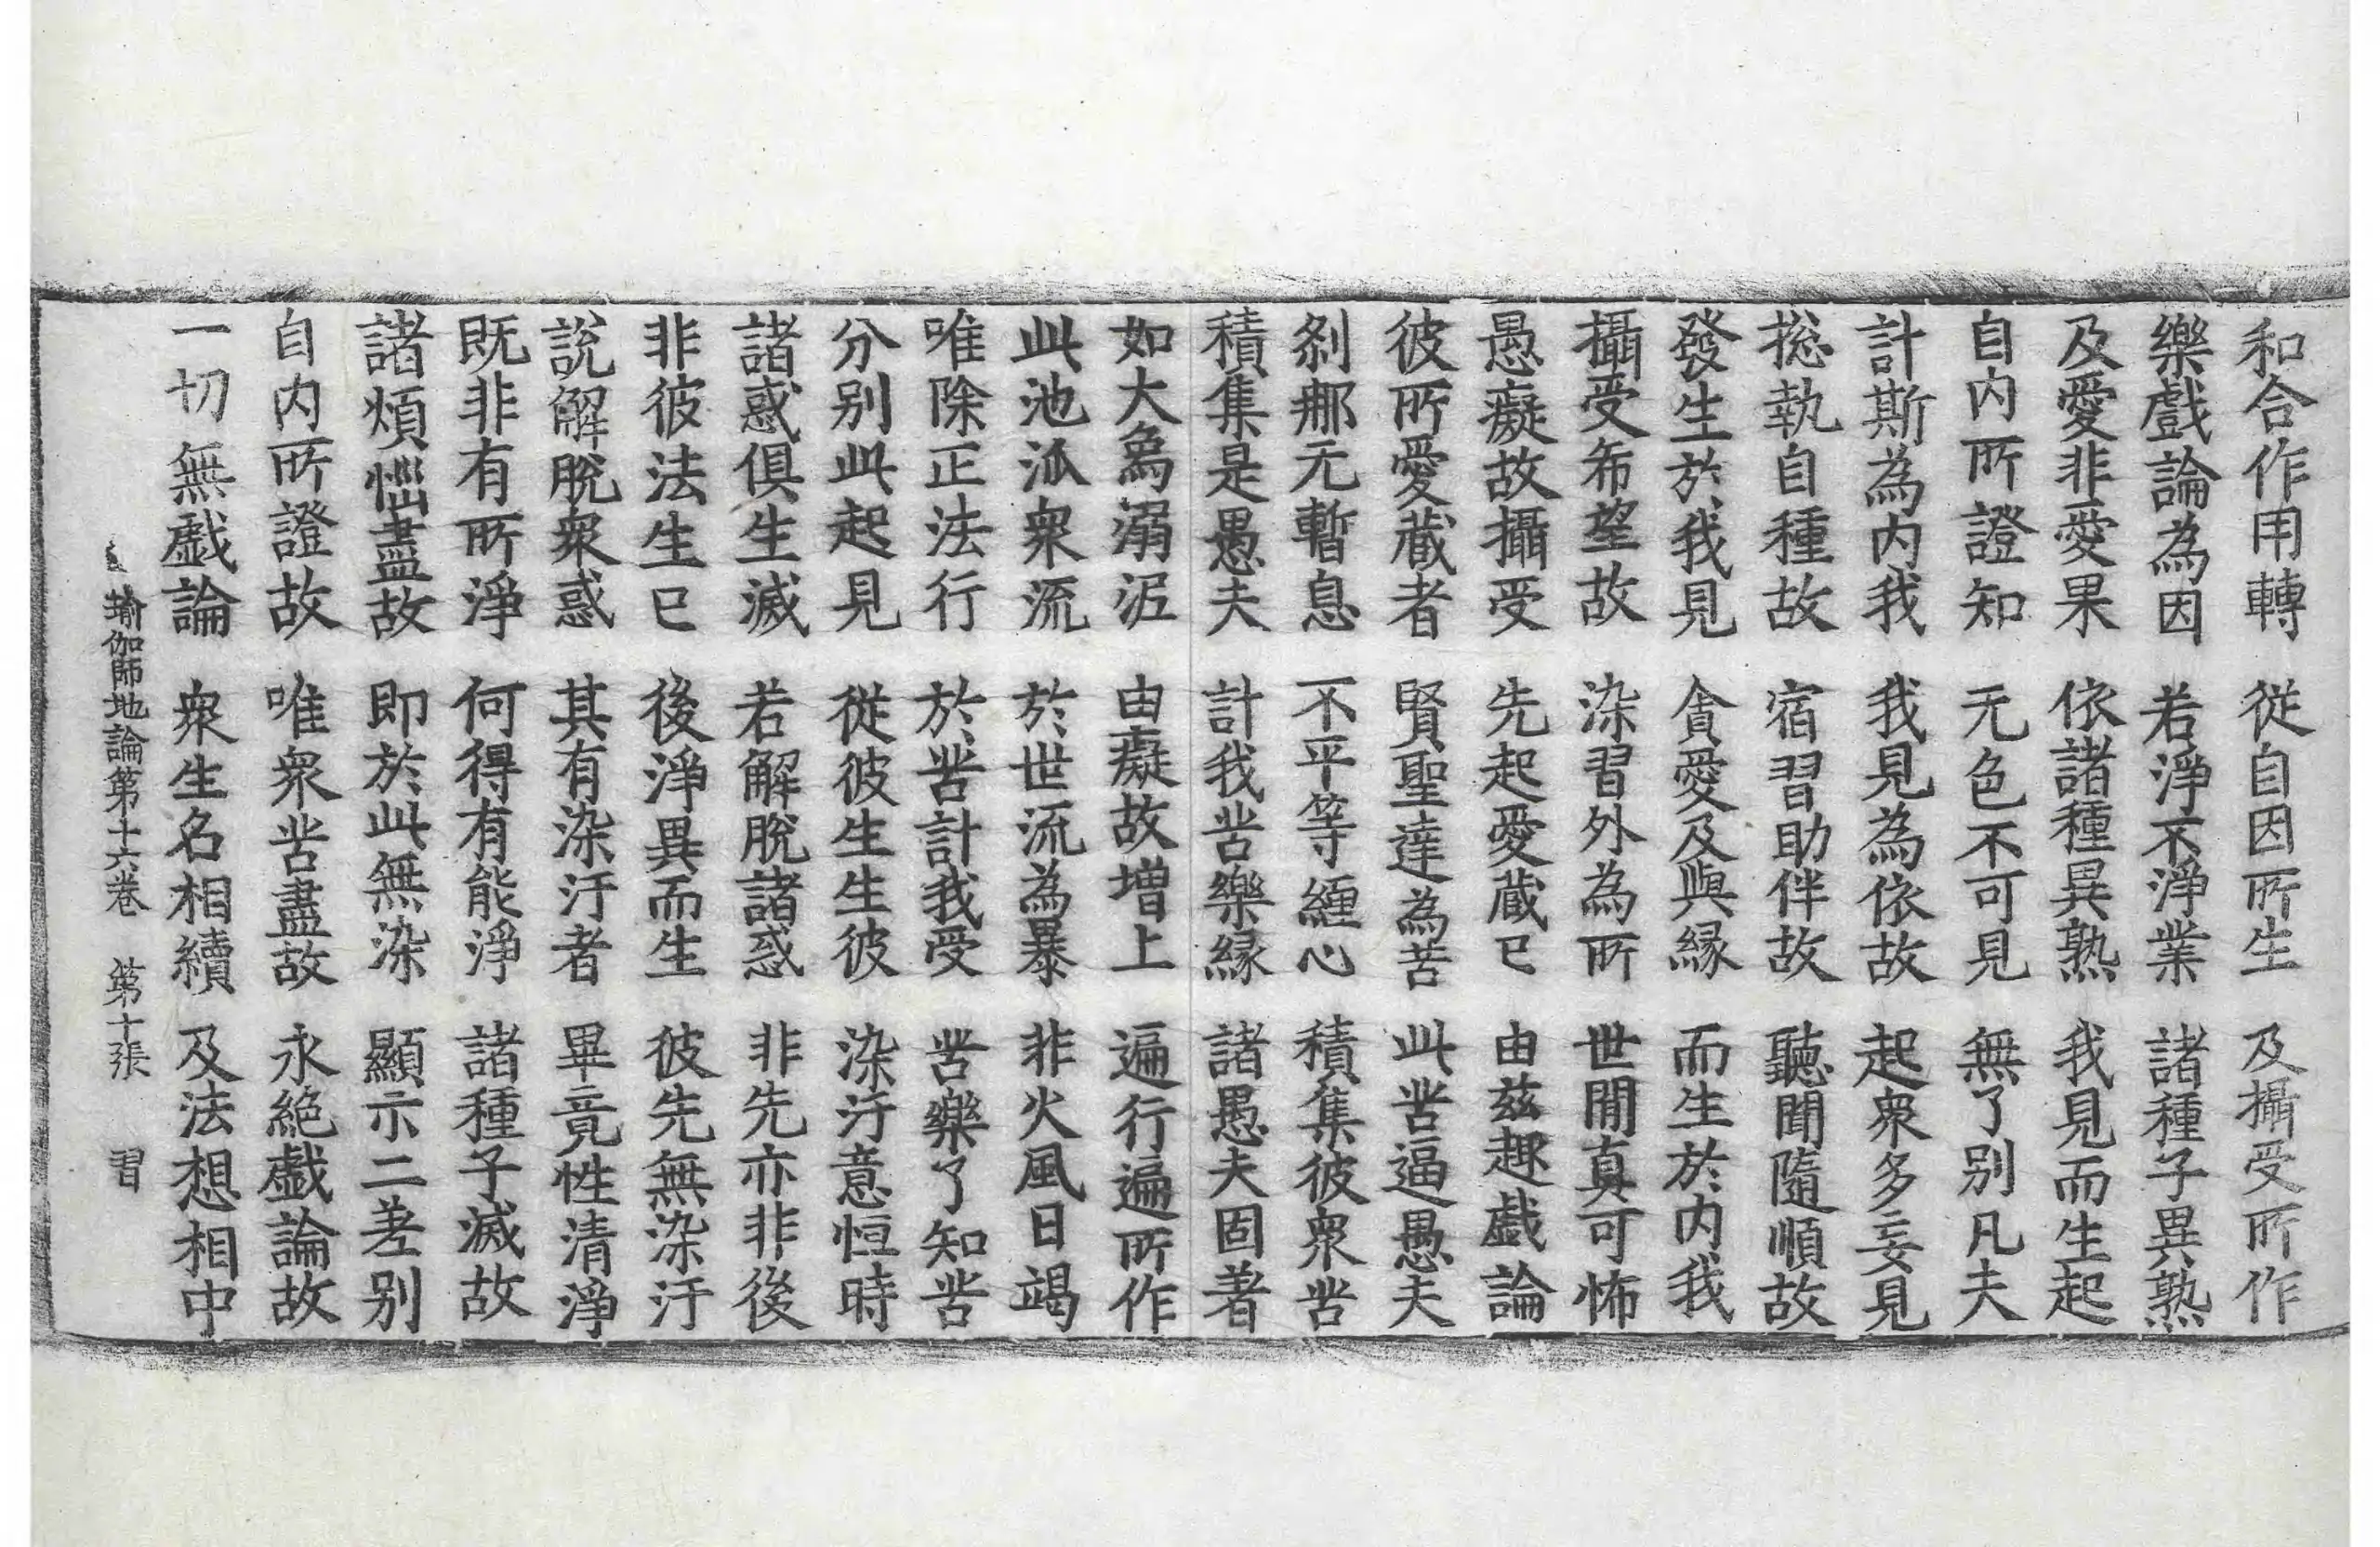 和合作用轉　從自因所生　及攝受所作
樂戲論為因　若淨不淨業　諸種子異熟
及愛非愛果　依諸種異熟　我見而生起
自内所證知　无色不可見　無了别凡夫
計斯為内我　我見為依故　起衆多妄見
捴執自種故　宿習助伴故　聽聞隨順故
發生於我見　貪愛及與緣　而生於内我
攝受希望故　染習外為所　世間真可怖
愚癡故攝受　先起愛藏已　由茲趣戲論
彼所愛藏者　賢聖達為苦　此苦逼愚夫
刹那无暫息　不平等纏心　積集彼衆苦
積集是愚夫　計我苦樂緣　諸愚夫固著
如大為溺泥　由癡故增上　遍行遍所作
此池派衆流　於世流為暴　非火風日竭
唯除正法行　於苦計我受　苦樂了知苦
分别此起見　從彼生生彼　染汙意恒時
諸惑俱生滅　若解脫諸惑　非先亦非後
非彼法生已　後淨異而生　彼先無染汙
說解脫衆惑　其有染汙者　畢竟性清淨
既非有所淨　何得有能淨　諸種子滅故
諸煩惱盡故　即於此無染　顯示二差别
自内所證故　唯衆苦盡故　永絶戲論故
一切無戲論　衆生名相續　及法想相中
瑜伽師地論第十六卷　第十張　習